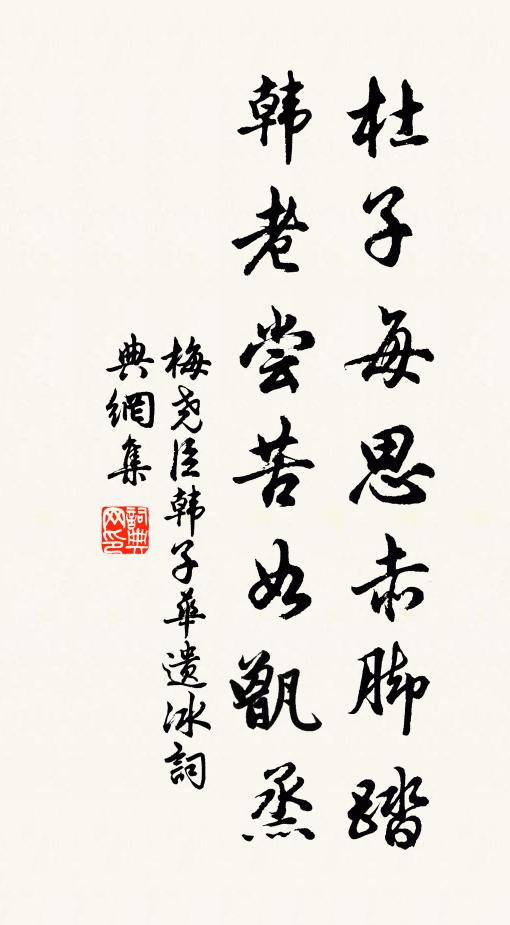 杜子每思赤脚踏
韩老尝苦如甑烝
梅尧臣韩子华遗冰詞
典網集
詞典
网印